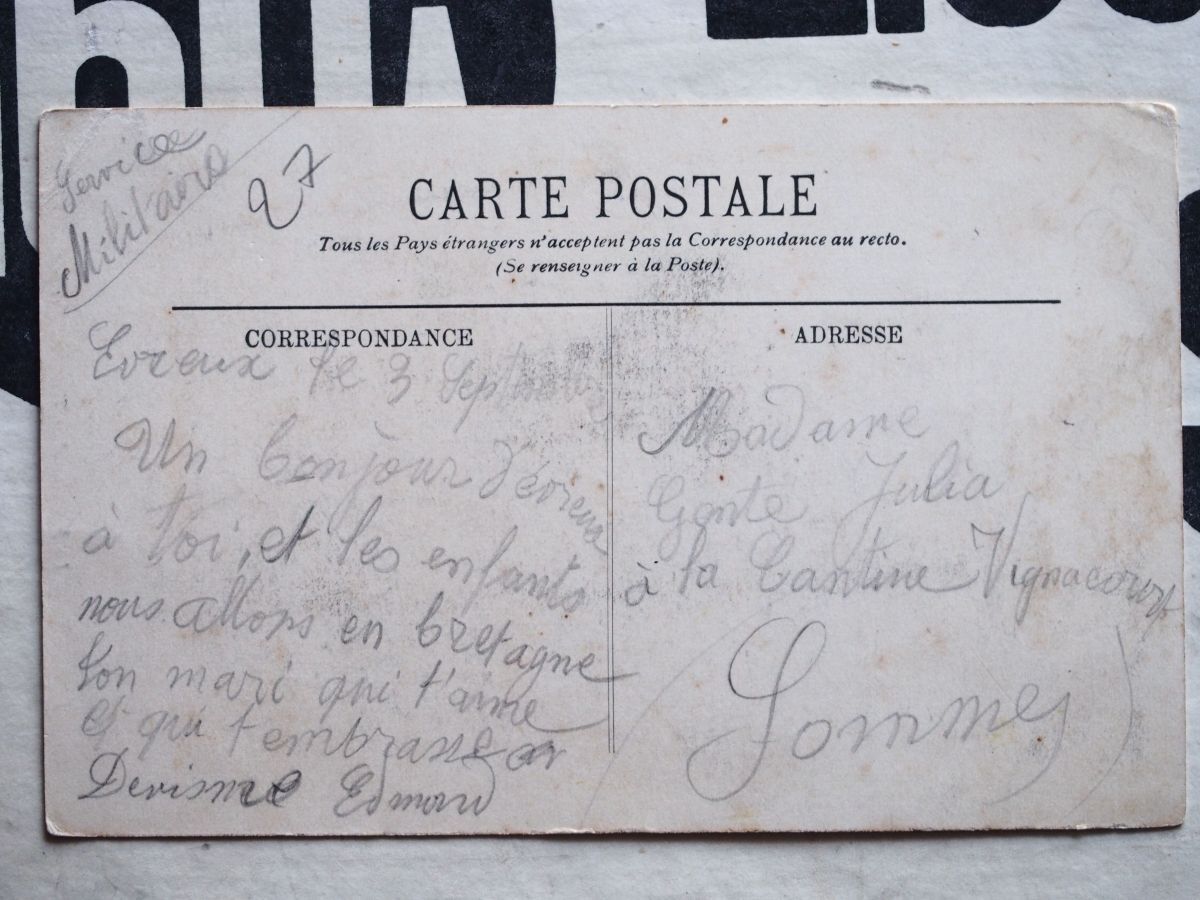 Service
Militaire
27
CARTE POSTALE
Tous les Pays étrangers n'acceptent pas la Correspondance au recto.
(Se renseigner à la Poste).
CORRESPONDANCE
Evreux le 3 Septembre
Un bonjour d'évreux
à toi, et les enfants
nous allons en bretagne
ton mari qui t'aime
et qui t'embrasse
Devisme Edmond
ADRESSE
Madame
Gente Julia
à la Cantine Vignacourt
(Somme)